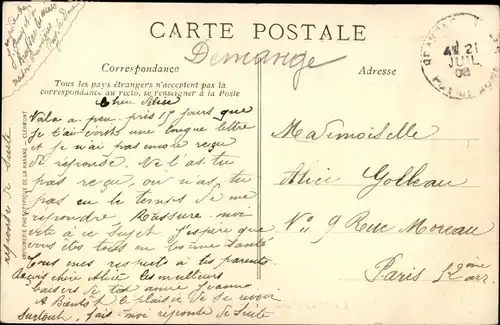 CARTE POSTALE
Demange
Correspondance
Adresse
Tous les pays étrangers n'acceptent pas la
correspondance au recto, se renseigner à la Poste
21
JUIL
08
Chère Alice
Voila a peu près 15 jours que
je t'ai écrit une longue lettre
et je n'ai pas encore reçu
de réponse. Ne l'as tu
pas reçu, ou n'as tu
pas eu le temps de me
répondre. Rassure-moi
vite à ce Sujet. J'espère que
vous êtes tous en bonne santé
Tous mes respects à tes parents
Reçois chère Alice les meilleurs
baisers de ton amie Jeanne
A Bientôt le plaisir de se revoir
Surtout, fais-moi réponse de Suite
Mademoiselle
Alice Golleau
N° 9 Rue Moreau
Paris 12ème
arr.
réponse de suite
IMPRIMERIE PHOTOTYPIQUE DE LA HAYANE - CLERMONT